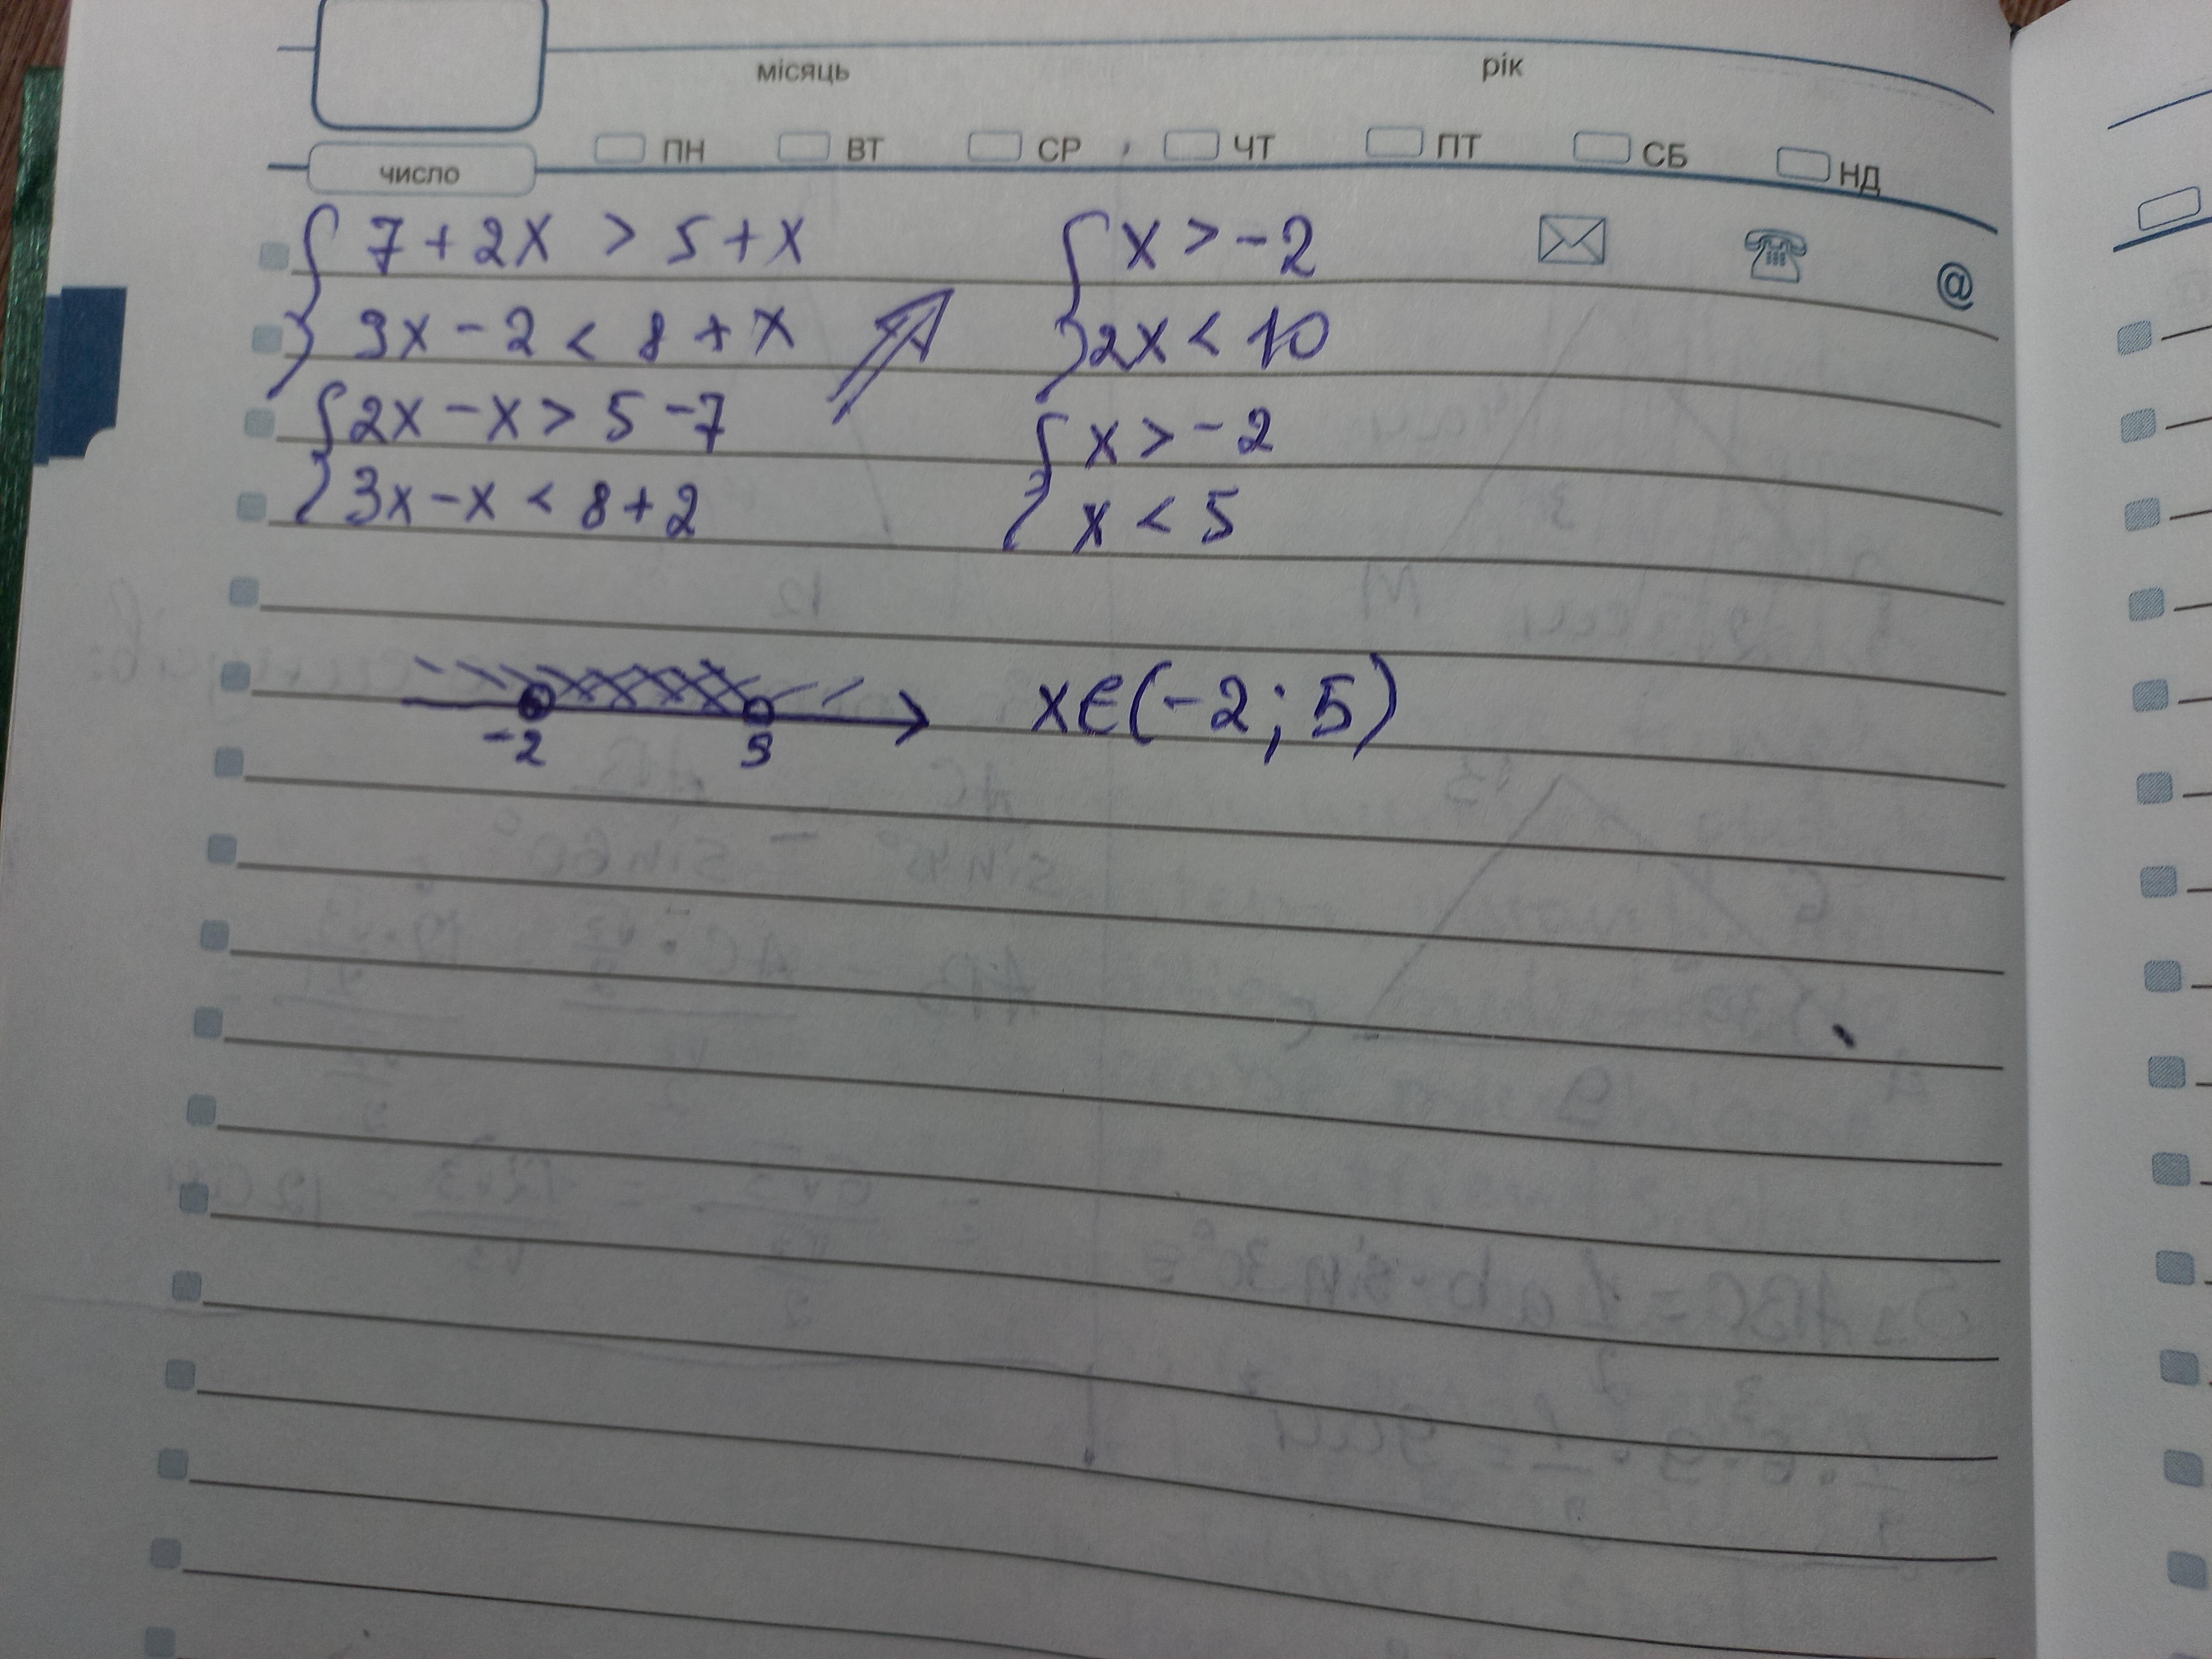 місяць рік
число ПН ВТ СР ЧТ ПТ СБ НД
{ 7 + 2x > 5 + x
3x - 2 < 8 + x
{ 2x - x > 5 - 7
3x - x < 8 + 2
{ x > -2
2x < 10
{ x > -2
x < 5
@
-2 5
x∈(-2; 5)